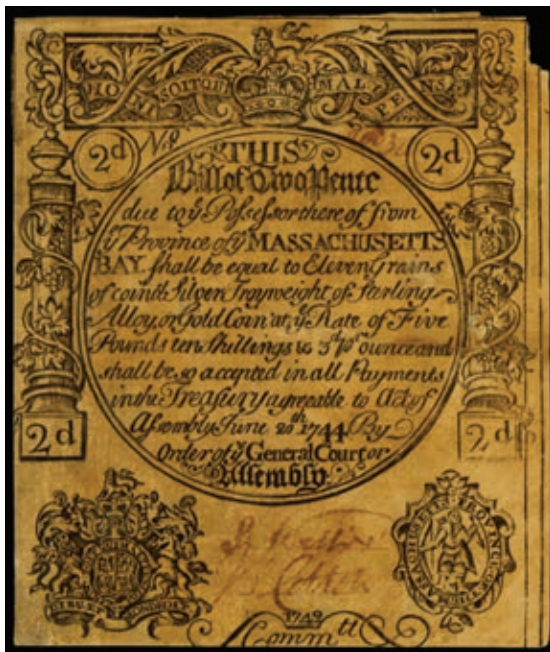 HONI SOIT QUI MAL PENS
2d No 2d
THIS
Bill of Two Pence
due to yͤ Possessor thereof from
yͤ Province of yͤ MASSACHUSETTS
BAY, shall be equal to Eleven grains
of coin'd Silver Troy weight of sterling
Alloy, or Gold Coin at yͤ Rate of Five
Pounds ten shillings &
ounce and
shall be so accepted in all Payments
in the Treasury agreeable to Act of
Assembly June 20th 1744 By
Order of yͤ General Court or
Assembly.
2d 2d
1749
Commtt